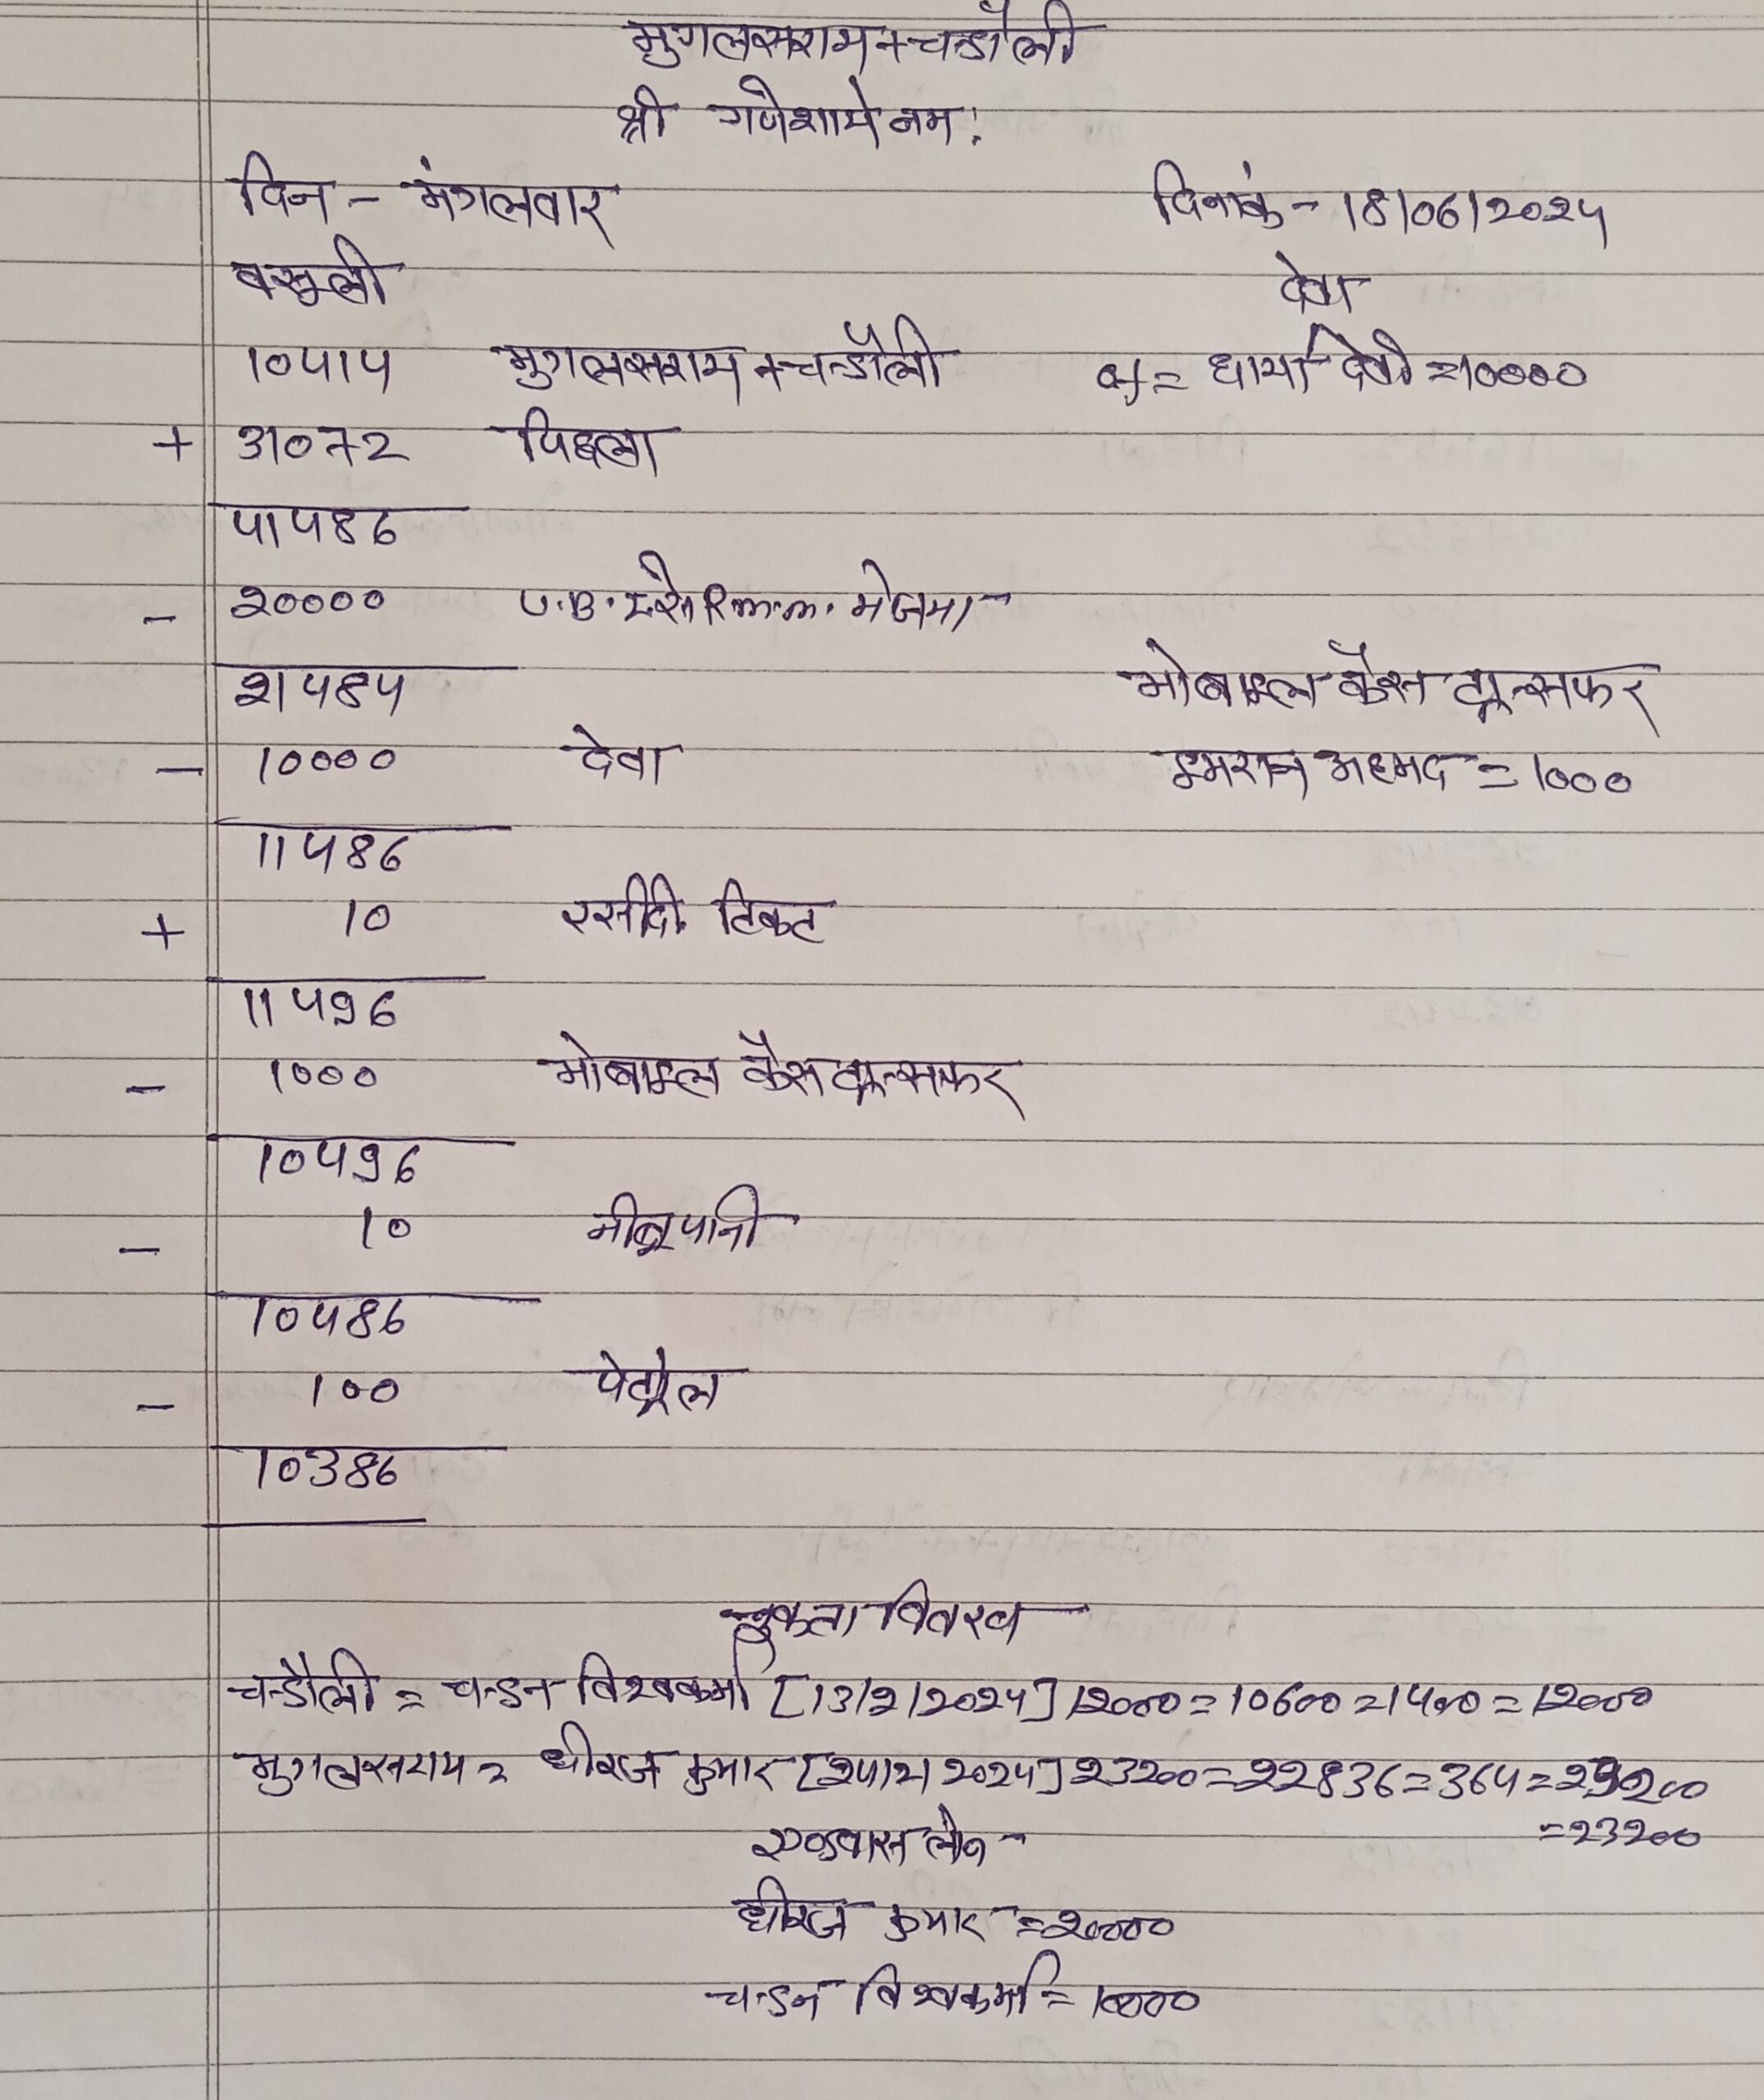 मुगलसराय + चन्डौली
श्री गणेशाये नम:
दिन - मंगलवार दिनांक - 18/06/2024
वसूली देवा
10414 मुगलसराय + चन्डौली = धार्या देवी = 10000
+ 31072 पिछला
41486
- 20000 U.B.I से R m.m. मे जमा
21484 मोबाइल कैस ट्रान्सफर
- 10000 देवा इमरान अहमद = 1000
11486
+ 10 रसीदी टिकट
11496
- 1000 मोबाइल कैस ट्रान्सफर
10496
- 10 नीबू पानी
10486
- 100 पेट्रोल
10386
चुकता विवरण
चन्डौली = चन्डन विश्वकर्मा [13/2/2024] 12000 = 10600 = 1400 = 12000
मुगलसराय = धीरज कुमार [24/2/2024] 23200 = 22836 = 364 = 23200
= 23200
एडवांस लोन
धीरज कुमार = 20000
चन्डन विश्वकर्मा = 10000